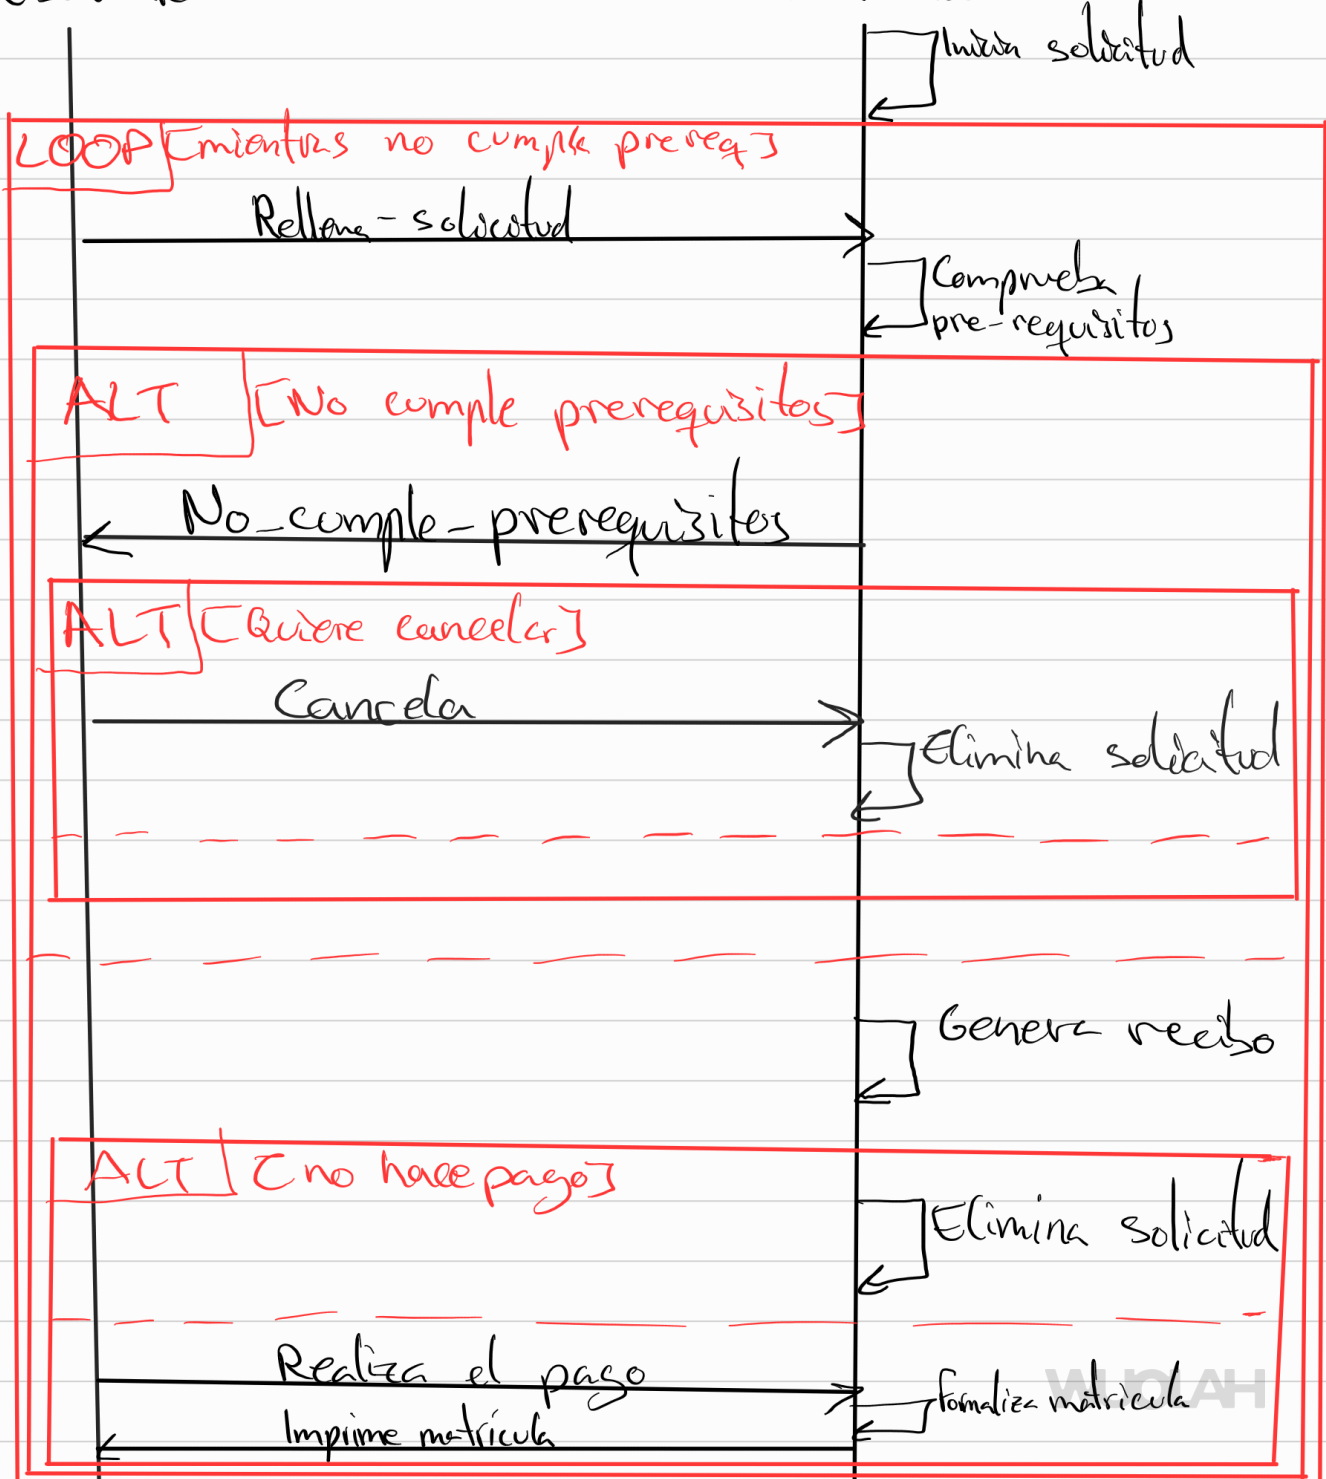 Inicia solicitud
LOOP [mientras no cumple prereq]
Rellena-solicitud
Comprueba
pre-requisitos
ALT [No cumple prerequisitos]
No_cumple_prerequisitos
ALT [Quiere cancelar]
Cancela
Elimina solicitud
Genera recibo
ALT [no hace pago]
Elimina solicitud
Realiza el pago
Formaliza matricula
WUOLAH
Imprime matrícula